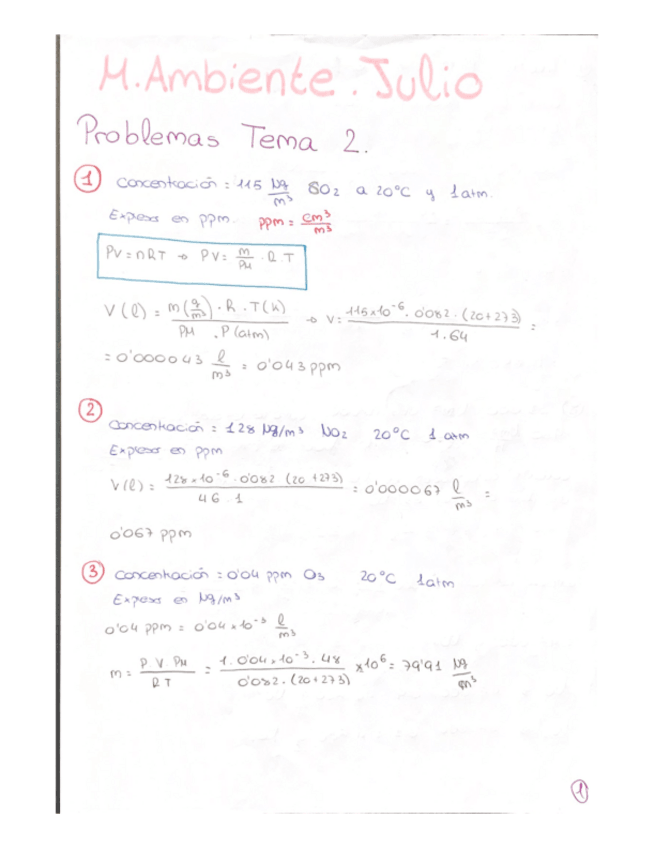 M.Ambiente.Julio
Problemas Tema 2.
1 Concentración : 115 µg/m³ SO₂ a 20°C y 1 atm.
Expresar en ppm. ppm = cm³/m³
PV = nRT → PV = m/PM · R · T
V(l) = m(g/m³) · R · T(k) / PM · P(atm) → V = 115×10⁻⁶ · 0'082 · (20+273) / 1 · 64 =
= 0'000043 l/m³ = 0'043 ppm
2
Concentración : 128 µg/m³ NO₂ 20°C 1 atm
Expresar en ppm
V(l) = 128×10⁻⁶ · 0'082 (20+273) / 46 · 1 = 0'000067 l/m³ =
0'067 ppm
3 Concentración : 0'04 ppm O₃ 20°C 1 atm
Expresar en µg/m³
0'04 ppm = 0'04×10⁻³ l/m³
m = P V PM / R T = 1 · 0'04×10⁻³ · 48 / 0'082 · (20+273) ×10⁶ = 79'91 µg/m³
1